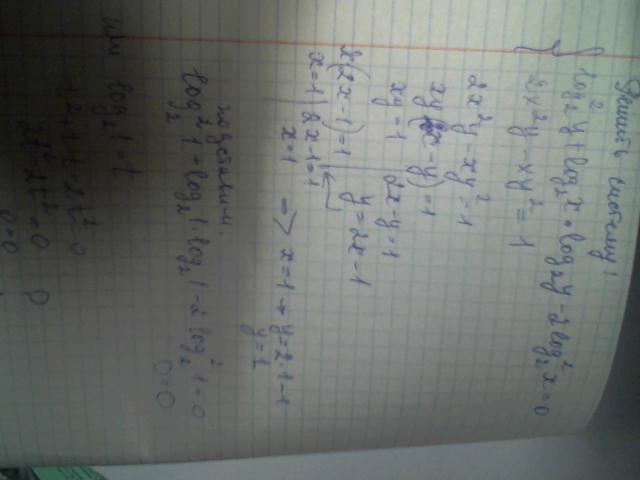 Решить систему!
{ log₂²y + log₂x • log₂y - 2log₂²x = 0
2x²y - xy² = 1
2x²y - xy² = 1
xy(2x - y) = 1
xy = 1 2x - y = 1
y = 2x - 1
x(2x - 1) = 1
x = 1 | 2x - 1 = 1
x = 1 => x = 1 → y = 2·1 - 1
y = 1
подставим:
log₂²1 + log₂1·log₂1 - 2log₂²1 = 0
0 = 0
или log₂1 = t
t² + t·t - 2t² = 0
2t² - 2t² = 0
0 = 0